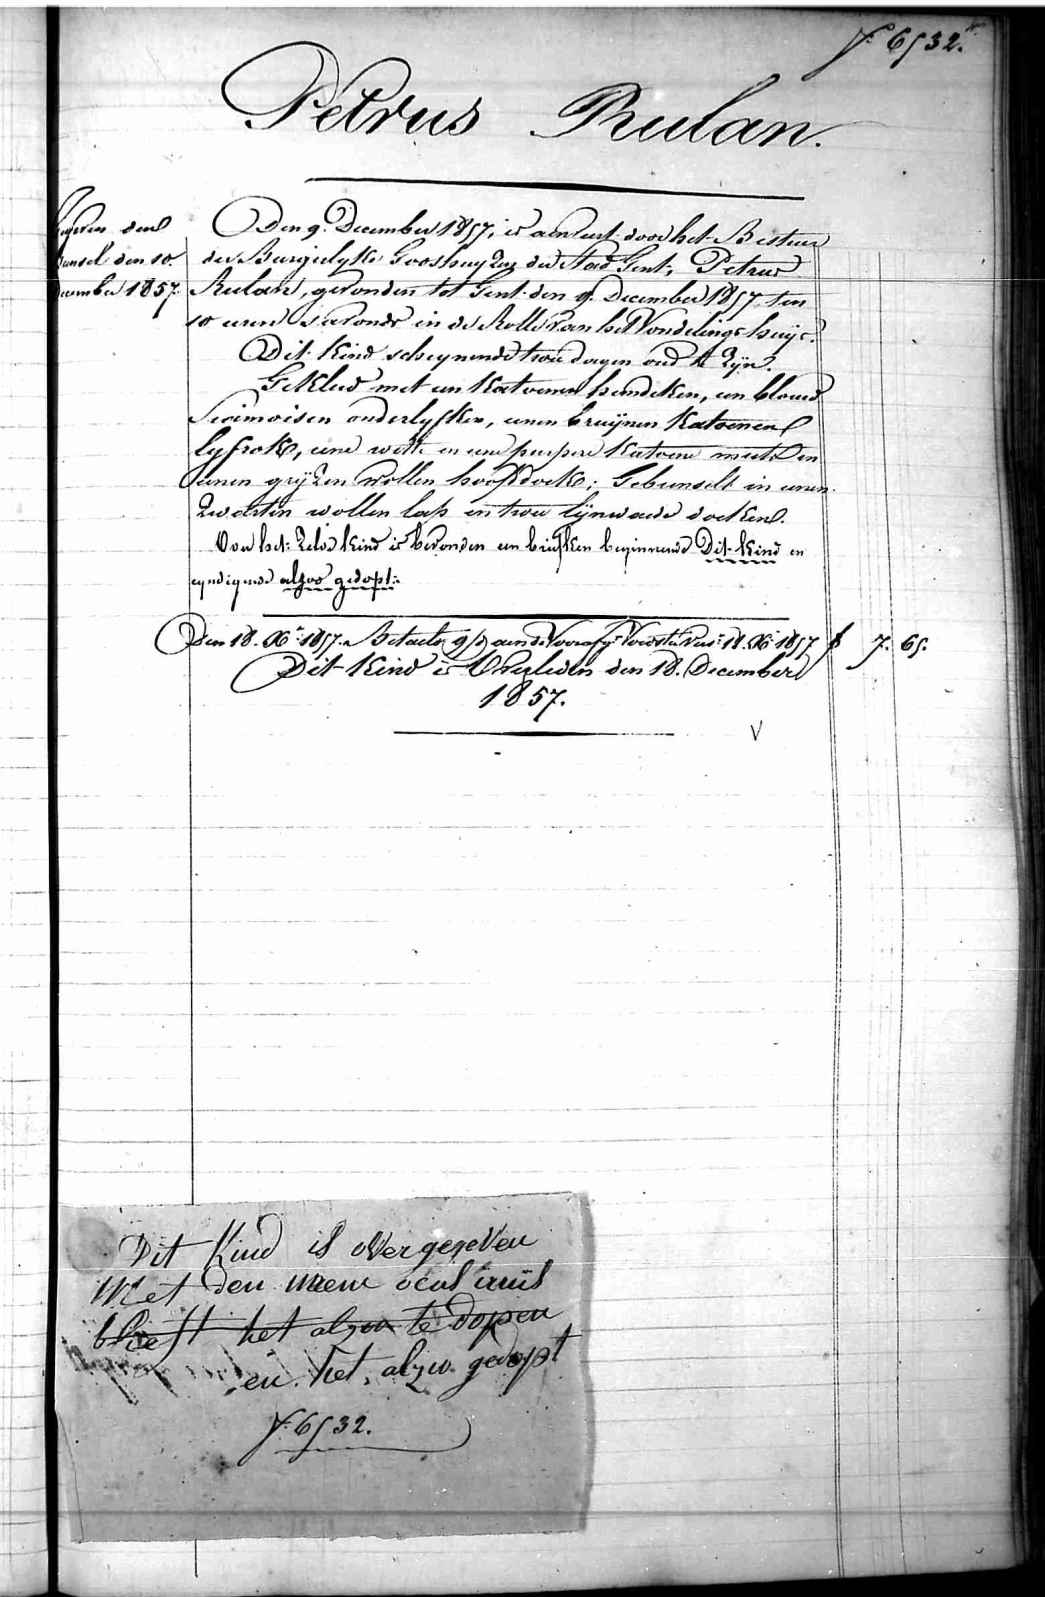 N.º 6532.
Petrus Rulan.
den
den 10.
december 1857.
Den 9. December 1857, is aenveert door het Bestuer
der Burgelyke Godshuyzen der Stad Gent, Petrus
Rulan, gevonden tot Gent den 9. December 1857 ten
10 uren s'avonds in de Rolle van het Vondelingshuys.
Dit Kind scheynende twee dagen oud te zyn.
Gekleed met een Katoenen hemdeken, een blauw
Siamoisen onderlyfken, eenen bruynen Katoenen
lyfrok, eene witte en eene purpere Katoene muts en
eenen gryzen wollen hoofddoek; Gebunselt in eenen
zwarten wollen lap en twee lynwaede doeken.
Voor het zelve Kind is bevonden een briefken beginnende Dit Kind en
eyndigende alzoo gedopt.
Den 18. Xb. 1857. Betaelt 18. Xb. 1857 f 7. 65.
Dit Kind is Overleden den 18. December
1857.
V
Dit Kind is overgegeven
Met den
blieft het alzoo te dopen
en het alzoo gedopt
N.º 6532.